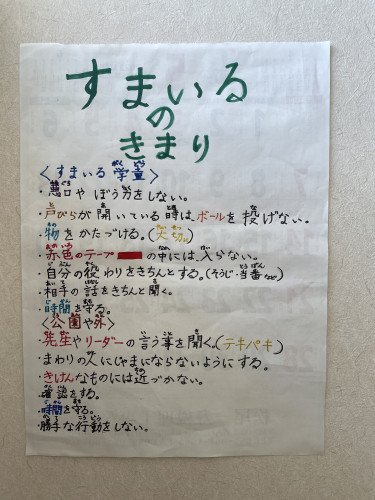 すまいる
の
きまり
<すまいる学童>
・悪口やぼう力をしない。
・戸びらが開いている時はボールを投げない。
・物をかたづける。(大切)
・赤色のテープの中には入らない。
・自分の役わりをきちんとする。(そうじ・当番など)
・相手の話をきちんと聞く。
・時間を守る。
<公園や外>
・先生やリーダーの言う事を聞く。(テキパキ)
・まわりの人にじゃまにならないようにする。
・きけんなものには近づかない。
・確認をする。
・時間を守る。
・勝手な行動をしない。